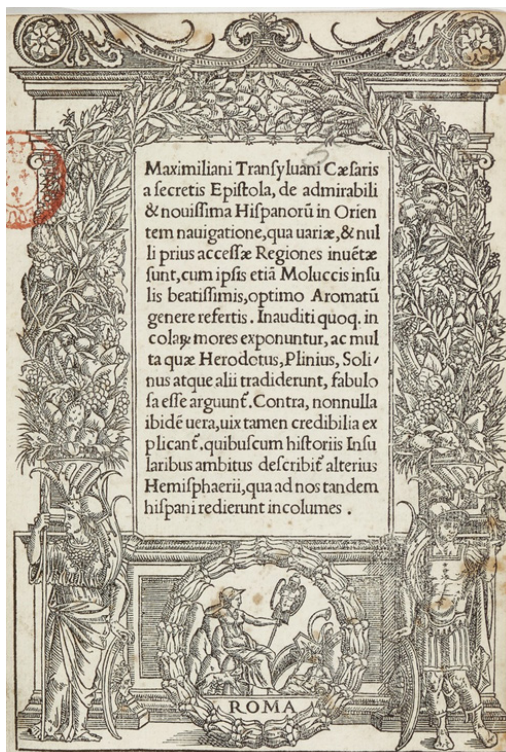 Maximiliani Tranſyluani Cæſaris
a ſecretis Epiſtola, de admirabili
& nouiſſima Hiſpanorū in Orien
tem nauigatione, qua uariæ, & nul
li prius acceſſæ Regiones inuētæ
ſunt, cum ipſis etiā Moluccis inſu
lis beatiſſimis, optimo Aromatū
genere refertis. Inauditi quoq. in
colaꝝ mores exponuntur, ac mul
ta quæ Herodotus, Plinius, Soli⸗
nus atque alii tradiderunt, fabulo
ſa eſſe arguunt̃. Contra, nonnulla
ibidē uera, uix tamen credibilia ex
plicant̃. quibuſcum hiſtoriis Inſu
laribus ambitus deſcribit̃ alterius
Hemiſphaerii, qua ad nos tandem
hiſpani redierunt incolumes.
ROMA